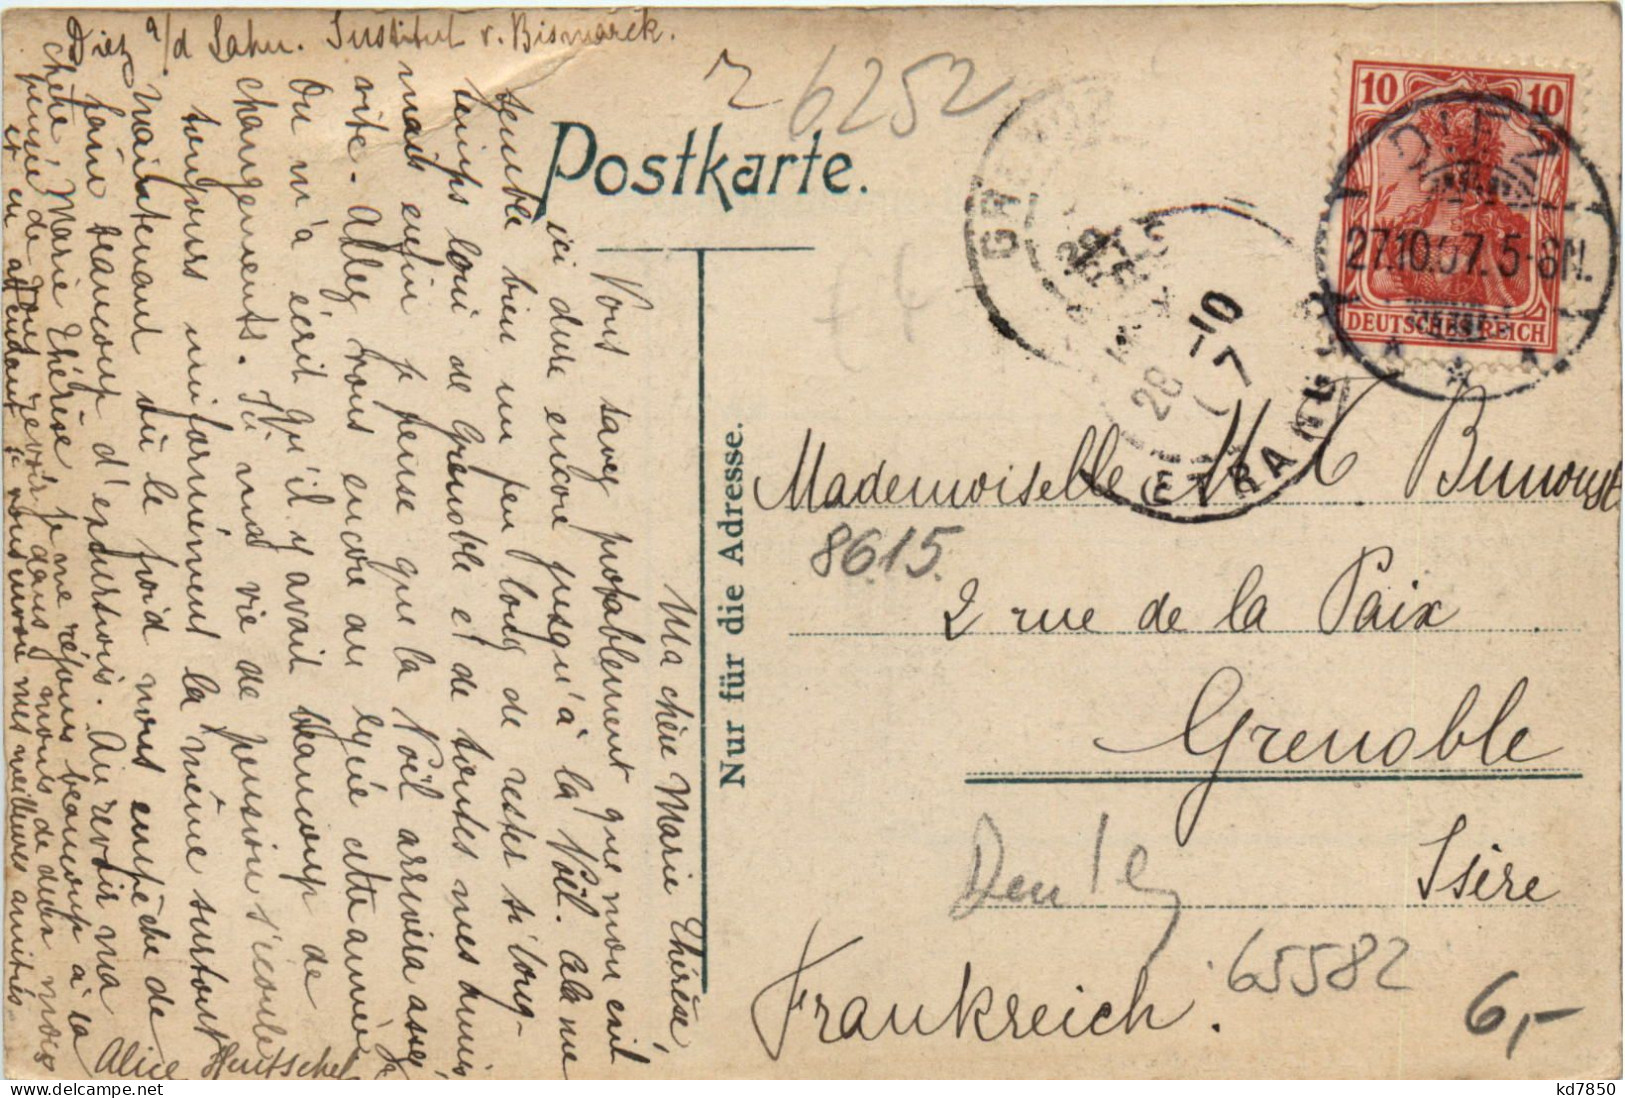 Diez a/d Lahn. Institut v. Bismarck.
Ma chère Marie Thérèse,
Vous savez probablement que mon exil
ici dure encore jusqu'à la Noël. Cela me
semble bien un peu long de rester si long-
temps loin de Grenoble et de toutes mes amies
mais enfin je pense que la Noël arrivera assez
vite. Allez vous encore au lycée cette année
On m'a écrit qu'il y avait beaucoup de
changements. Ici ma vie de pension s'écoule
toujours uniformément la même surtout
maintenant où le froid nous empêche de
faire beaucoup d'excursions. Au revoir ma
chère Marie Thérèse je me réjouis beaucoup à la
pensée de vous revoir dans moins de deux mois
et en attendant je vous envoie mes meilleures amitiés
Alice Hentschel
Postkarte.
Nur für die Adresse.
6252
10 10
DEUTSCHES REICH
DIEZ
27.10.07. 5-6N.
GRENOBLE
28 -10
07
ETRANGER
Mademoiselle M. T.
8615.
2 rue de la Paix
Grenoble
Isère
Frankreich.
65582
6,-
kd7850